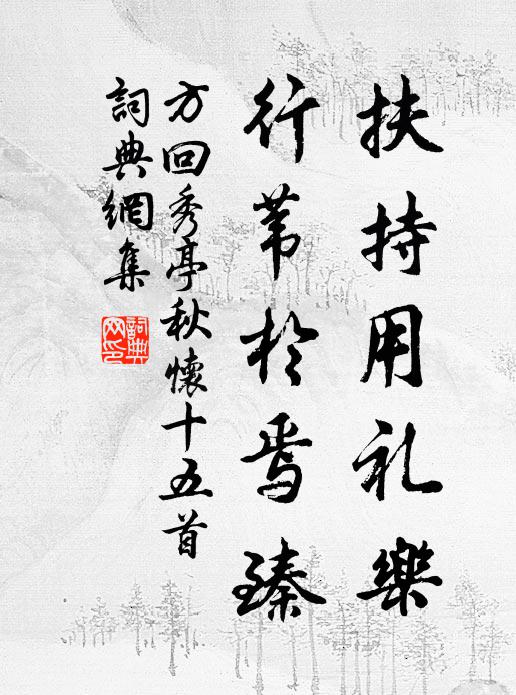 扶持用礼樂
行葦於焉臻
方回秀亭秋懷十五首
詞典網集
詞典網印